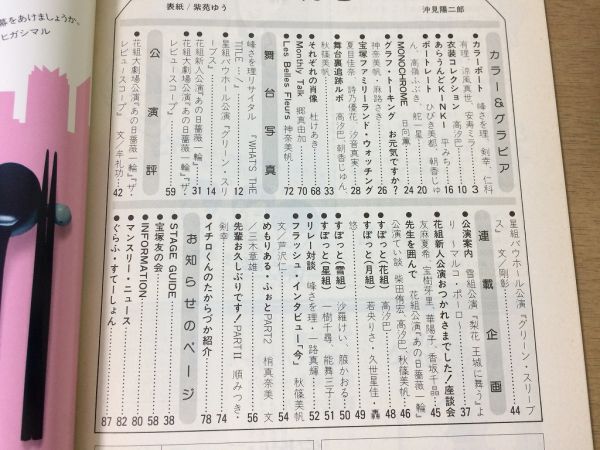 幕をあけましょうか。
ヒガシマル
表紙/紫苑ゆう
沖見陽二郎
カラー&グラビア
●カラーポート 峰さを理、剣幸、仁科
有理、涼風真世、安寿ミラ 3
●衣装コレクション 高汐巴 10
●あらうんどKINKI 平みち 16
●ポートレート ひびき美都、朝香じゅ
ん、高嶺ふぶき、舵一星 20
●MONOCHROME 日向薫 24
●グラフ・トーキング お元気ですか?
神奈美帆・麻路さき 26
●宝塚ファミリーランド・ウォッチング
夏目佳奈・詩乃優花、汐音真実 28
●舞台裏追跡ルポ 高汐巴、朝香じゅん、
秋篠美帆 33
●それぞれの肖像 杜けあき 68
●Monthly Talk 郷真由加 70
●Les Belles Fleurs 神奈美帆 72
舞台写真
●峰さを理リサイタル『WHAT'S THE
TITLE…』 12
●星組バウホール公演『グリーン・スリ
ーブス』 14
●花組新人公演『あの日薔薇一輪』 31
●花組大劇場公演『あの日薔薇一輪』『ザ・
レビュースコープ』 59
公演評
●花組大劇場公演『あの日薔薇一輪』『ザ・
レビュースコープ』 文/牟礼功 42
●星組バウホール公演『グリーン・スリーブ
ス』 文/剛彰 44
連載企画
●公演案内 雪組公演『梨花 王城に舞う』よ
り ~マルコ・ポーロ~ 37
●花組新人公演おつかれさまでした!座談会
友麻夏希、宝樹芽里、華陽子、香坂千晶 45
●先生を囲んで 花組公演『あの日薔薇一輪』
公演てい談 柴田侑宏、高汐巴、秋篠美帆 46
●すぽっと(月組) 若央りさ・久世星佳・轟
悠 48
●すぽっと(花組) 高汐巴 49
●すぽっと(雪組) 沙羅けい、朧かおる 50
●すぽっと(星組) 一樹千尋、能舞三子 51
●リレー対談 峰さを理・一路真輝 52
●フラッシュ・インタビュー「今」 秋篠美帆
文/芦沢仁 54
●めもりある・ふぉとPART2 梢真奈美 文
/三木章雄 56
●先輩お久しぶりです!PARTII 順みつき・
剣幸 74
●イチロくんのたからづか紹介 78
お知らせのページ
●STAGE GUIDE 38
●宝塚友の会 58
●INFORMATION 80
●マンスリー・ニュース 82
●ぐらふ・すてーしょん 87